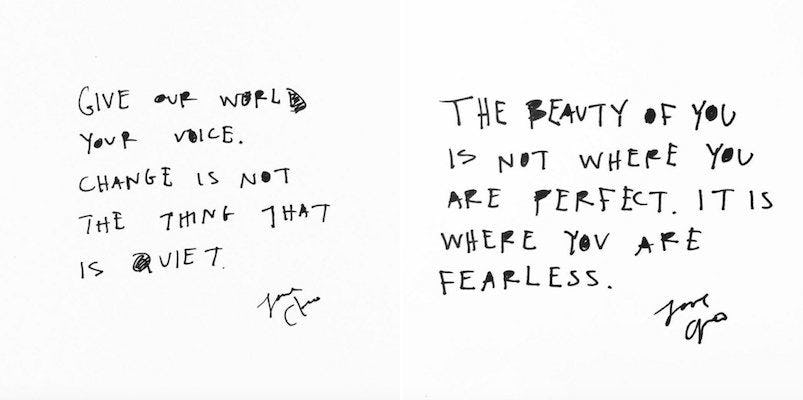 GIVE OUR WORLD
YOUR VOICE.
CHANGE IS NOT
THE THING THAT
IS QUIET.
love
THE BEAUTY OF YOU
IS NOT WHERE YOU
ARE PERFECT. IT IS
WHERE YOU ARE
FEARLESS.
love